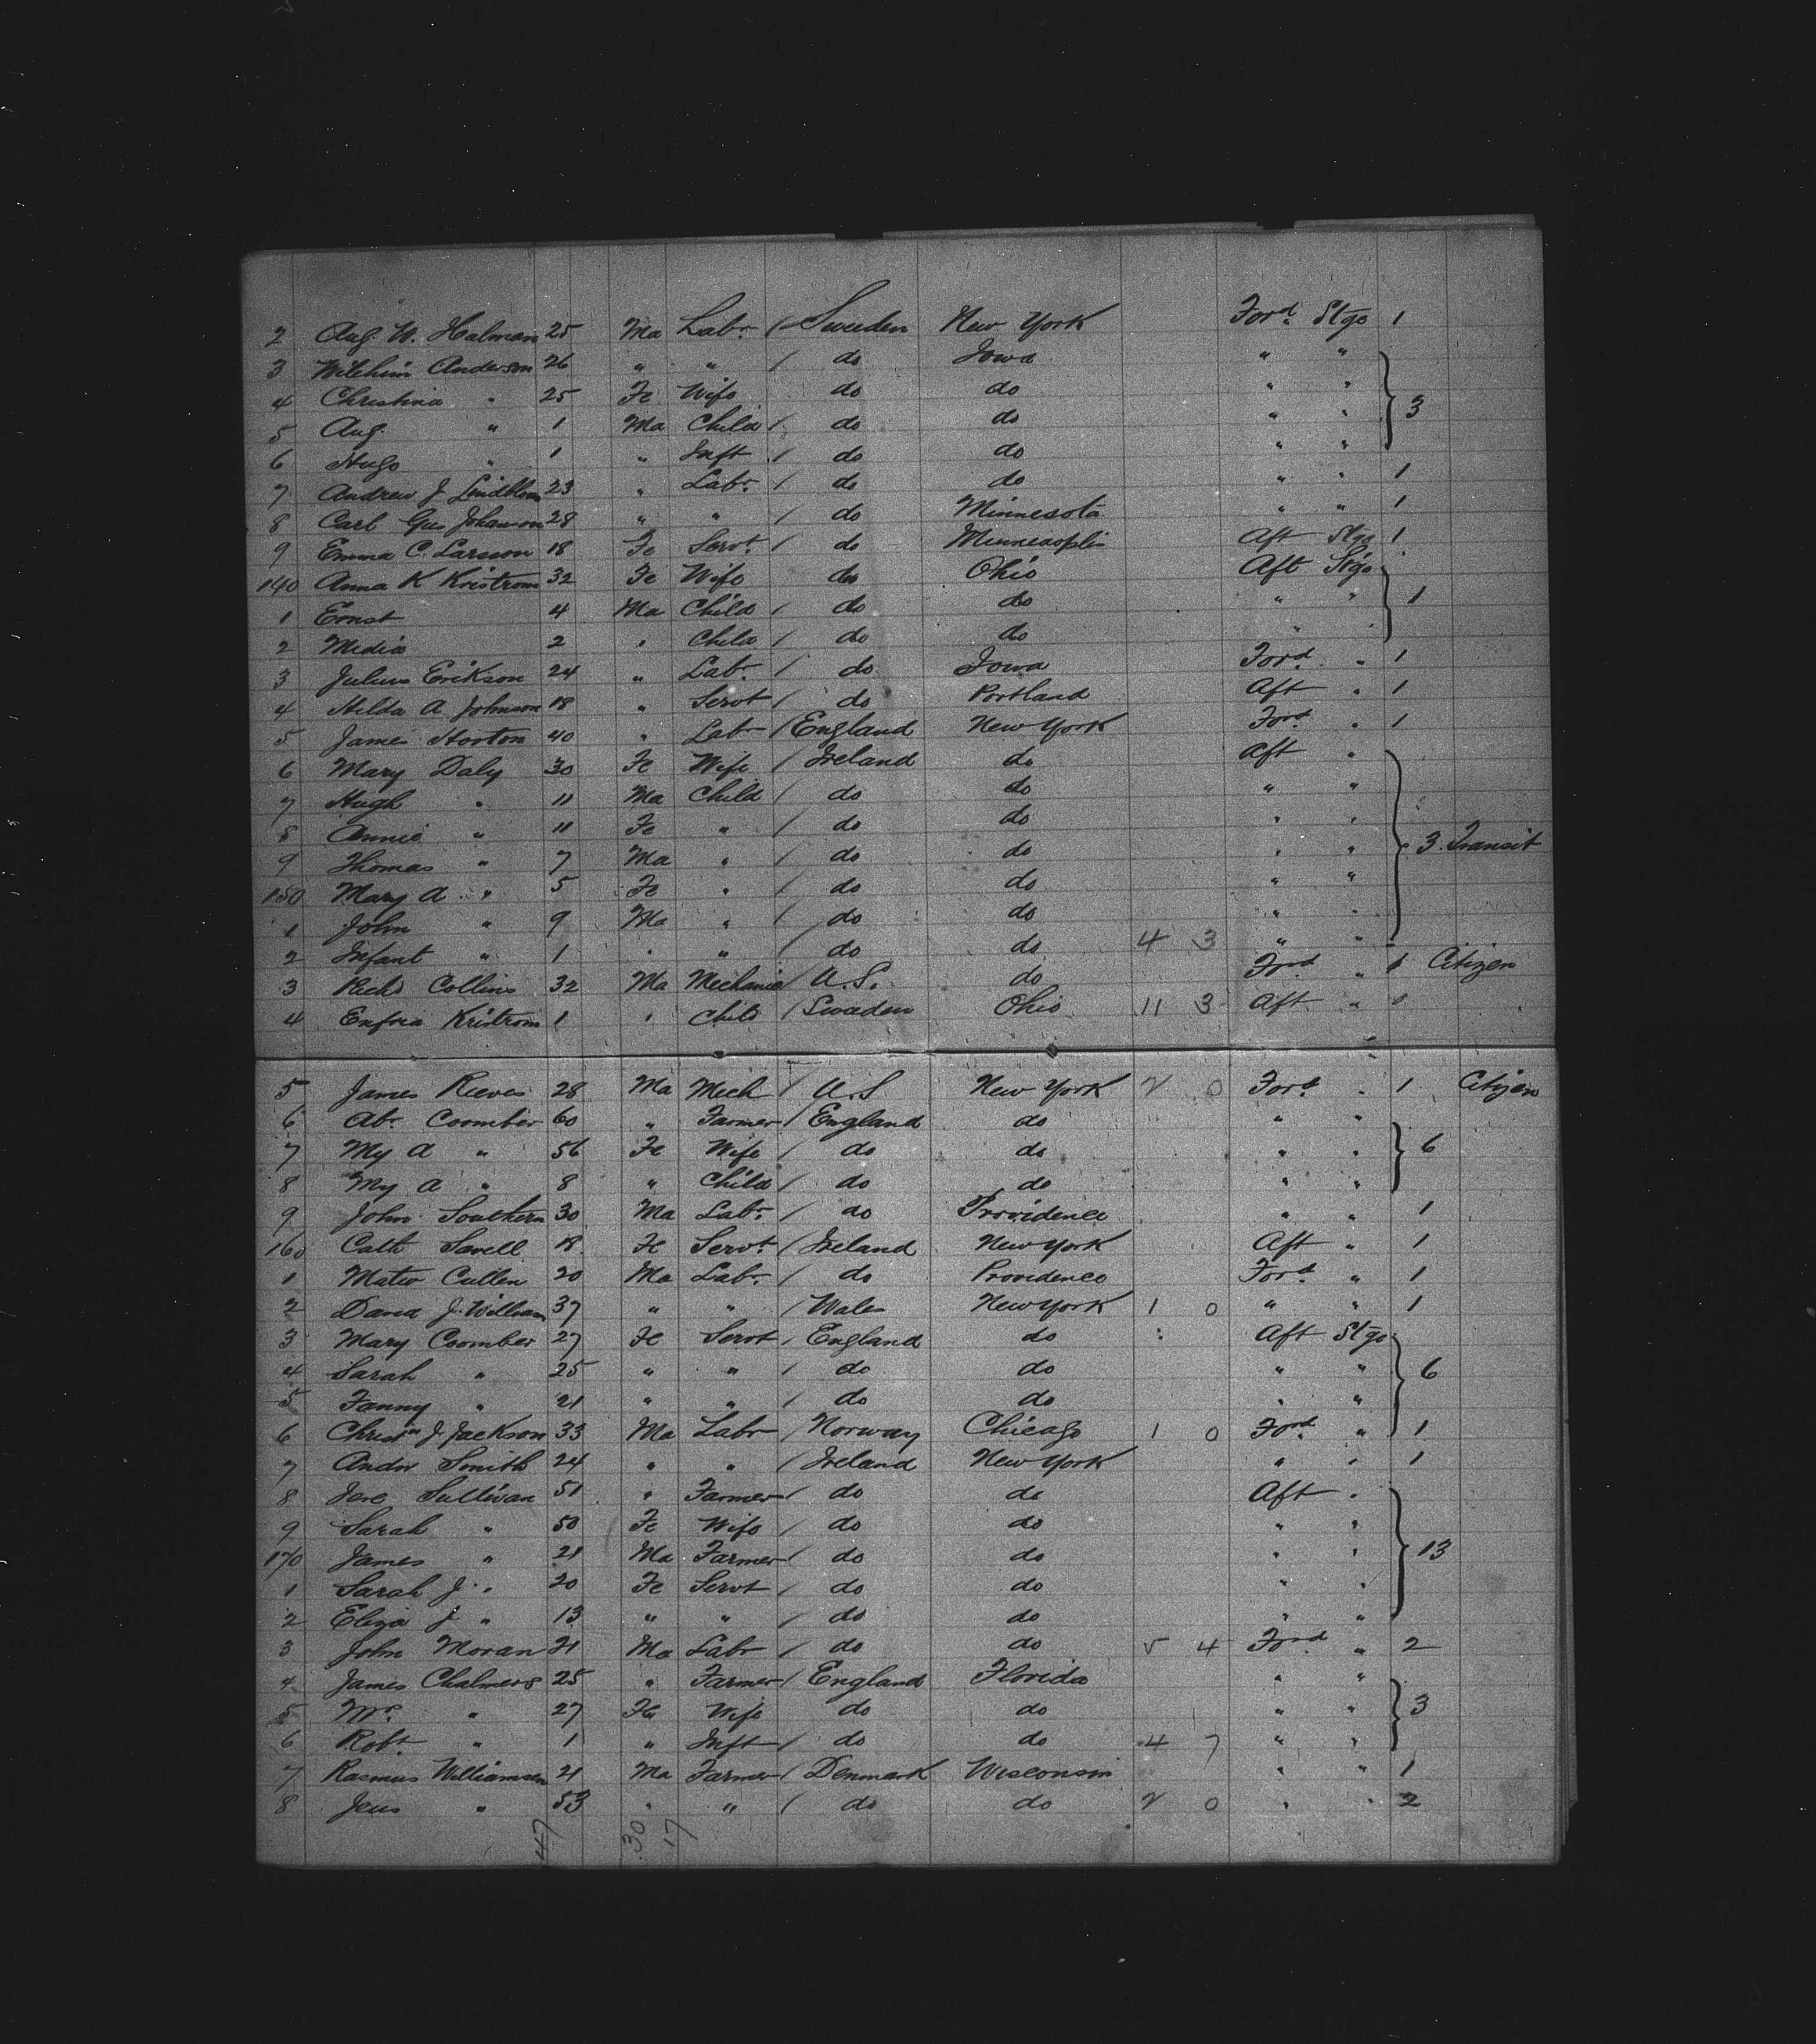 2 Aug. W. Halman 25 Ma Labr / Sweden New York Ford Stge 1
3 Wilhim Anderson 26 " " / do Iowa " "
4 Christina " 25 Fe Wife do do " " 3
5 Aug. " 1 Ma Child / do do " "
6 Hugo " 1 " Inft / do do " "
7 Andrew J Lindblom 23 " Labr / do do " " 1
8 Carl Gus Johanson 28 " " / do Minnesota " " 1
9 Emma C. Larsson 18 Fe Servt / do Minneaoplis Aft Stge 1
140 Anna K Kristrom 32 Fe Wife do Ohio Aft Stge
1 Ernst 4 Ma Child / do do " " 1
2 Media 2 " Child / do do "
3 Julius Erikson 24 " Labr / do Iowa Ford " 1
4 Hilda A Johnson 18 " Servt / do Portland Aft " 1
5 James Horton 40 " Labr / England New York Ford " 1
6 Mary Daly 30 Fe Wife / Ireland do Aft "
7 Hugh " 11 Ma Child / do do " "
8 Annie " 11 Fe " / do do " "
9 Thomas " 7 Ma " / do do " " 3 Transit
150 Mary A " 5 Fe " / do do " "
1 John " 9 Ma " / do do " "
2 Infant " 1 " " / do do 4 3 " "
3 Richd Collins 32 Ma Mechanic / U.S. do Ford " 1 Citizen
4 Kristrom 1 " Child / Sweden Ohio 11 3 Aft "
5 James Reeves 28 Ma Mech / U.S New York 2 0 Ford " 1 Citizen
6 Ab. Coomber 60 " Farmer / England do " "
7 My A " 56 Fe Wife / do do " " 6
8 My A " 8 " Child / do do " "
9 John Southern 30 Ma Labr / do Providence " " 1
160 Cath Savell 18 Fe Servt / Ireland New York Aft " 1
1 Matw Cullen 20 Ma Labr / do Providence Ford " 1
2 David J. William 37 " " / Wales New York 1 0 " " 1
3 Mary Coomber 27 Fe Servt / England do Aft Stge
4 Sarah " 25 " " / do do " " 6
5 Fanny " 21 " " / do do " "
6 Christn J. Jackson 33 Ma Labr / Norway Chicago 1 0 Ford " 1
7 Andw Smith 24 " " / Ireland New York " " 1
8 Jere Sullivan 51 " Farmer / do do Aft "
9 Sarah " 50 Fe Wife / do do " "
170 James " 21 Ma Farmer / do do " " 13
1 Sarah J " 20 Fe Servt / do do " "
2 Eliza J " 13 " " / do do " "
3 John Moran 21 Ma Labr / do do 5 4 Ford " 2
4 James Chalmers 25 " Farmer / England Florida " "
5 Mrs " 27 Fe Wife do do " " 3
6 Robt " 1 " Inft / do do 4 7 " "
7 Rasmus Williamsen 21 Ma Farmer / Denmark Wisconsin " " 1
8 Jens " 53 " " / do do 2 0 " " 2
47 30 17